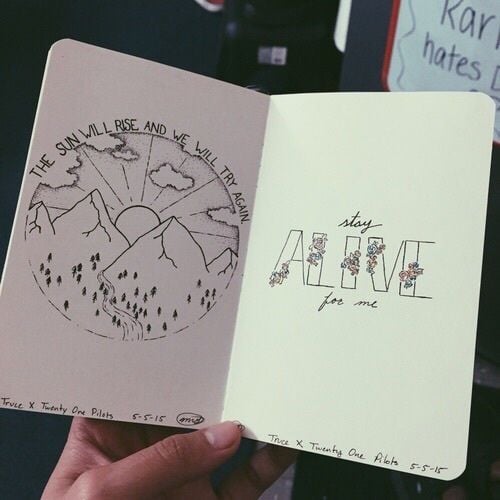 THE SUN WILL RISE, AND WE WILL TRY AGAIN.
Truce X Twenty One Pilots 5-5-15
stay
ALIVE
for me
Truce X Twenty One Pilots 5-5-15
hates